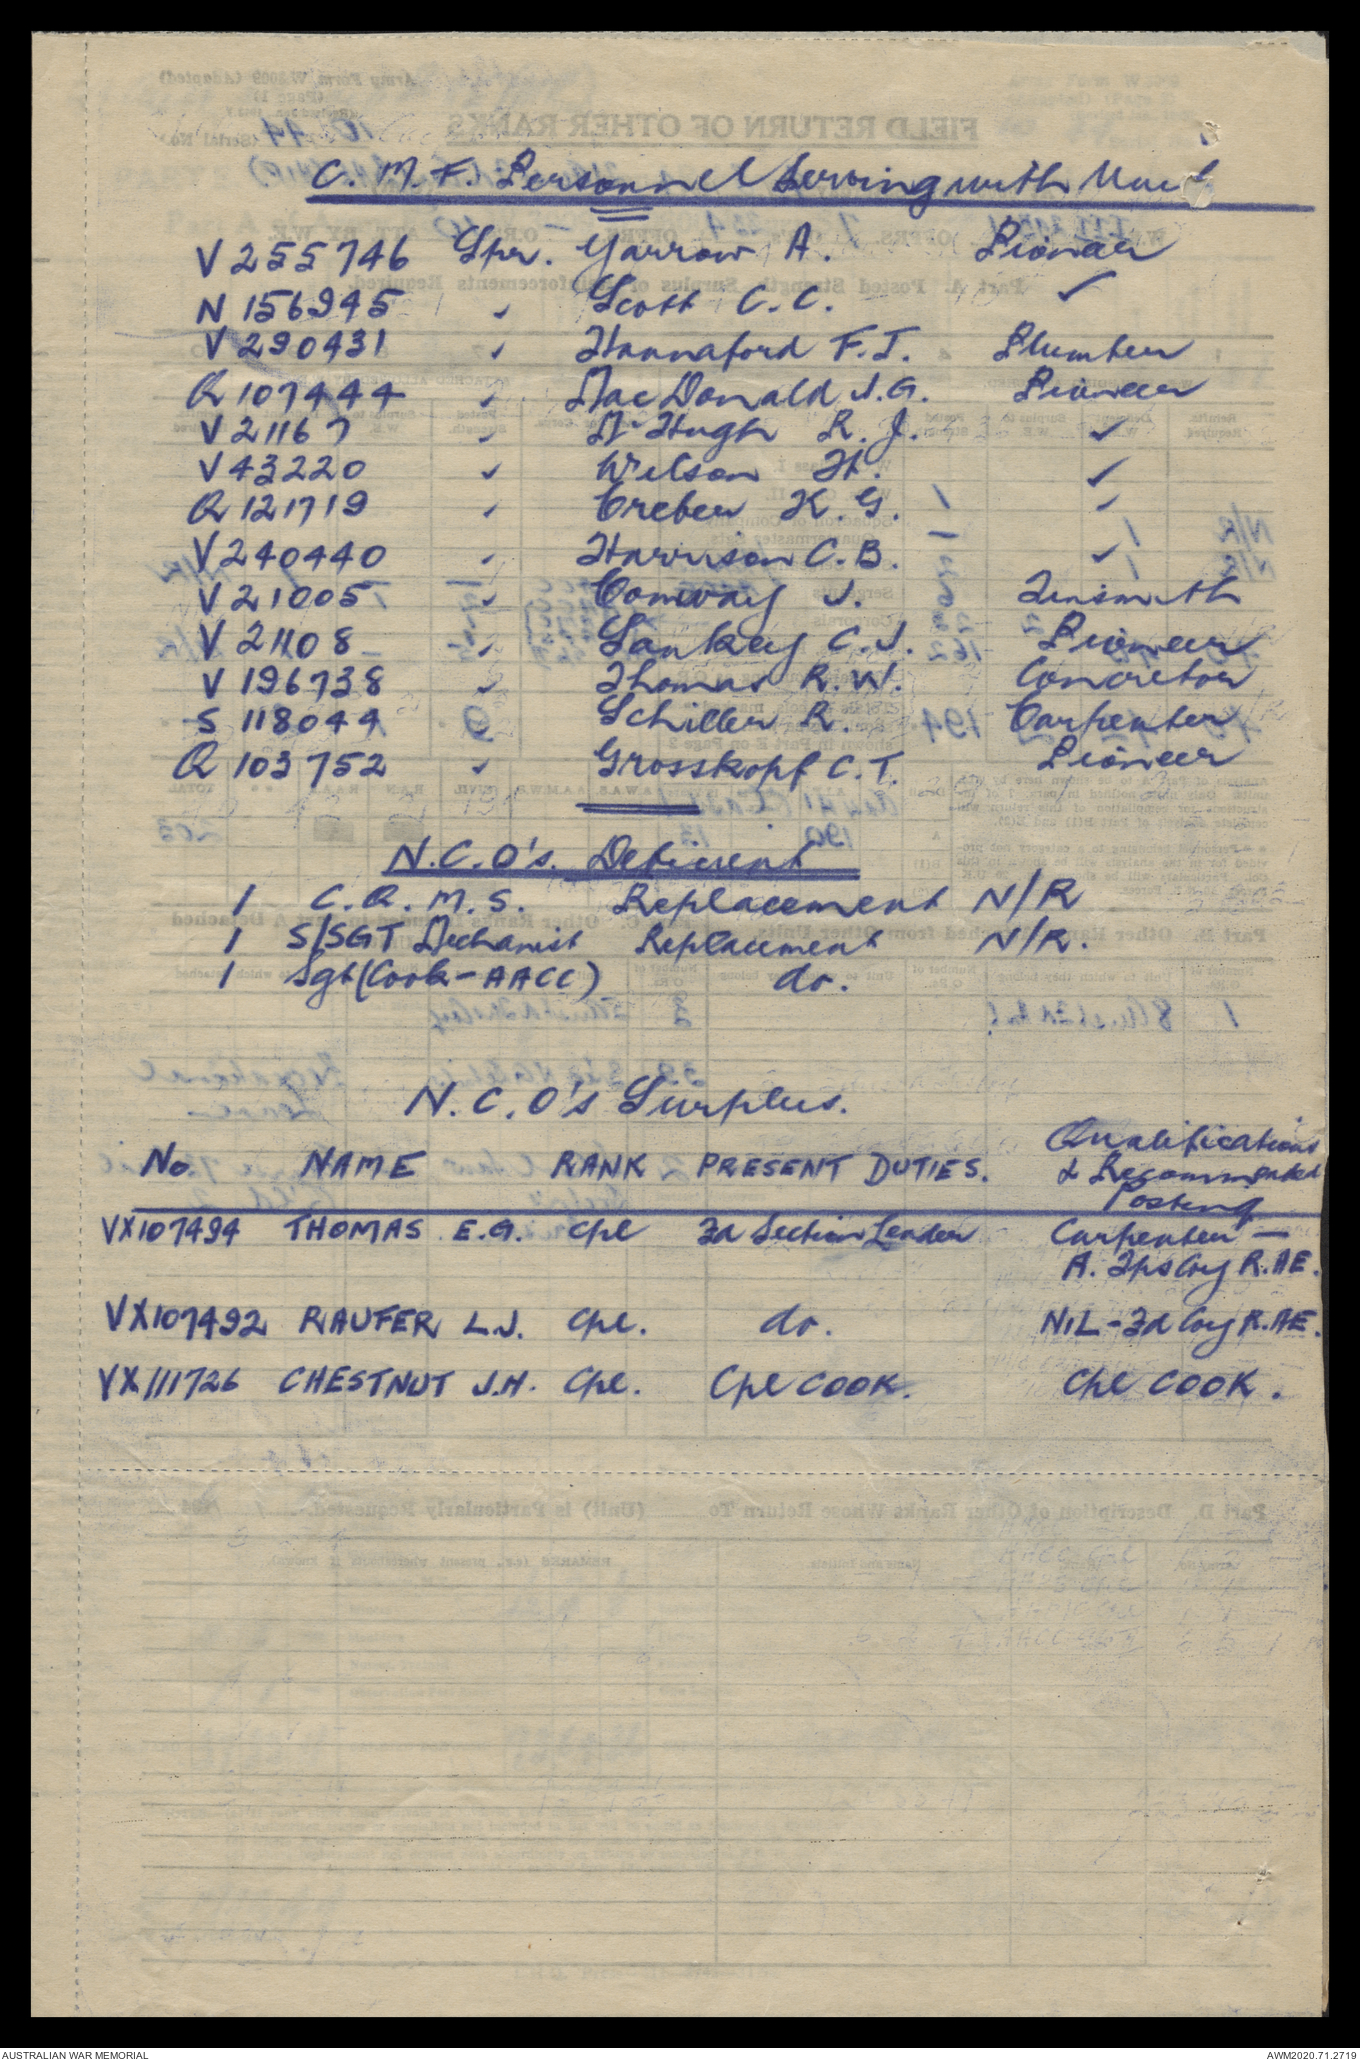 C. M. F. Personnel Serving with Unit
V 255746 Spr. Yarrow A. Pioneer
N 156945 " Scott C. C. "
V 290431 " Hannaford F. J. Plumber
Q 107444 " MacDonald J. G. Pioneer
V 21167 " McHugh R. J. "
V 43220 " Wilson H. "
Q 121719 " Creber K. G. "
V 240440 " Harrison C. B. "
V 21005 " Conway J. Tinsmith
V 21108 " Sankey C. J. Pioneer
V 196738 " Thomas R. W. Concretor
S 118044 Schiller R. Carpenter
Q 103752 " Grosskopf C. T. Pioneer
N.C.O's. Deficient
1 C. Q. M. S. Replacement N/R
1 S/SGT Mechanist Replacement N/R.
1 Sgt (Cook - AACC) do.
N.C.O's Surplus.
No. NAME RANK PRESENT DUTIES. Qualifications
& Recommended
Posting
VX107494 THOMAS E.G. Cpl 3d Section Leader Carpenter —
A. Tps Coy R.AE.
VX107492 RAUFER L.J. Cpl. do. NIL - 3d Coy R.AE.
VX111726 CHESTNUT J.H. Cpl. Cpl COOK. Cpl COOK.
AUSTRALIAN WAR MEMORIAL AWM2020.71.2719